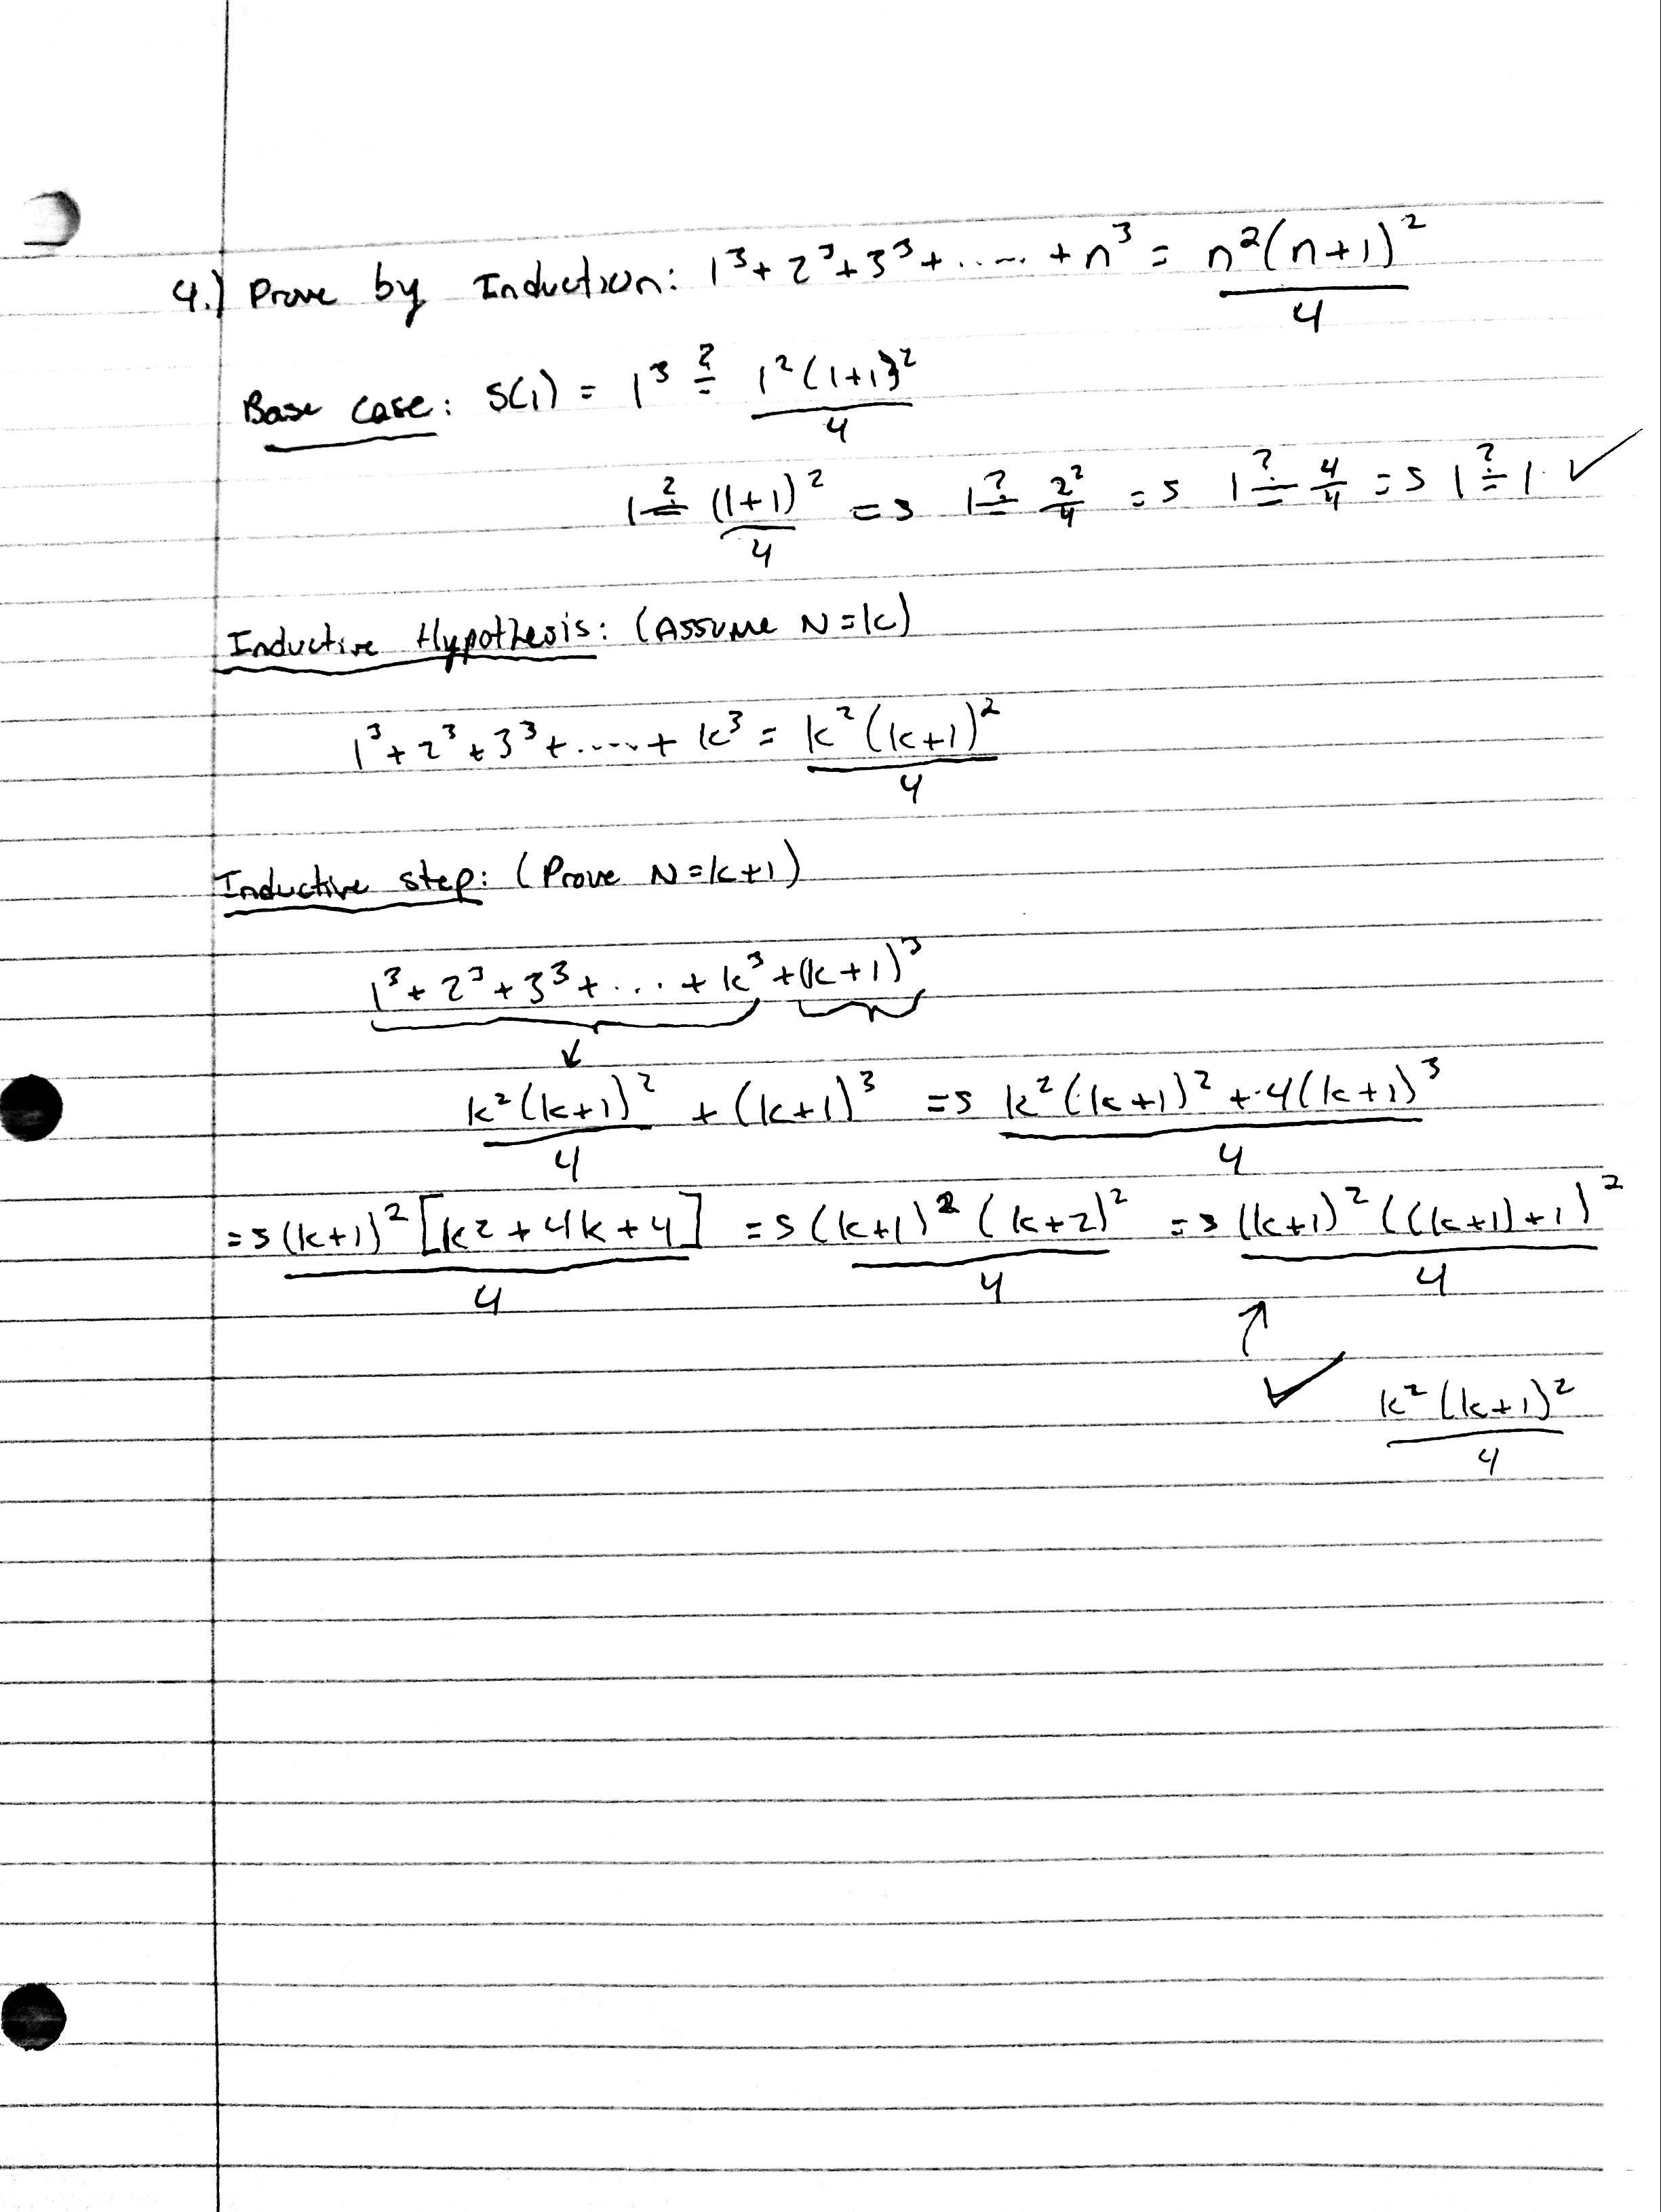 4.) Prove by Induction: 1³ + 2³ + 3³ + ..... + n³ = n²(n+1)²/4
Base case: S(1) = 1³ ≟ 1²(1+1)²/4
1 ≟ (1+1)²/4 => 1 ≟ 2²/4 => 1 ≟ 4/4 => 1 ≟ 1 ✓
Inductive Hypothesis: (Assume N=k)
1³ + 2³ + 3³ + ..... + k³ = k²(k+1)²/4
Inductive step: (Prove N=k+1)
1³ + 2³ + 3³ + ... + k³ + (k+1)³
↓
k²(k+1)²/4 + (k+1)³ => k²(k+1)² + 4(k+1)³/4
=> (k+1)²[k2 + 4k + 4]/4 => (k+1)²(k+2)²/4 => (k+1)²((k+1)+1)²/4
↑
✓ k²(k+1)²/4